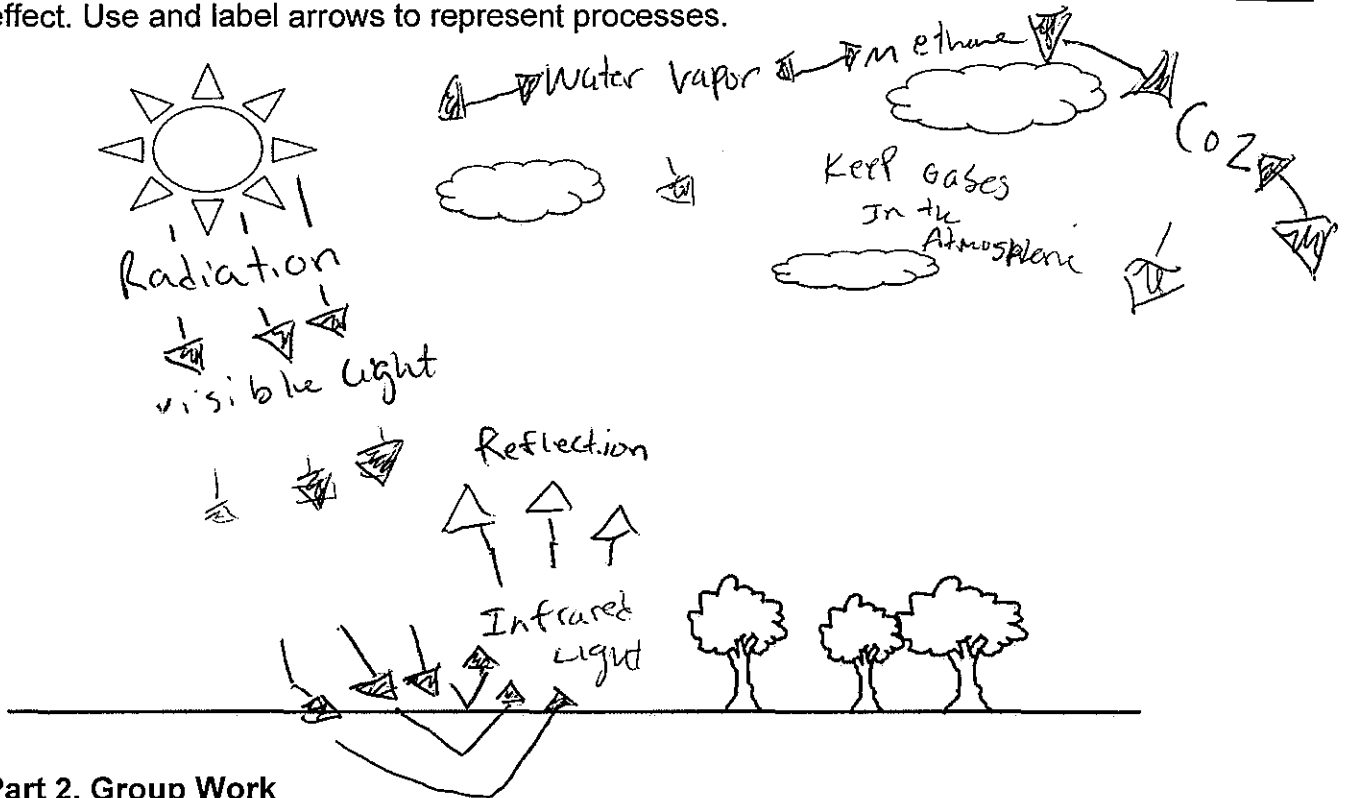 effect. Use and label arrows to represent processes.
Water Vapor
Methane
Co2
Keep Gases
In the
Atmosphere
Radiation
visible Light
Reflection
Infrared
Light
Part 2. Group Work